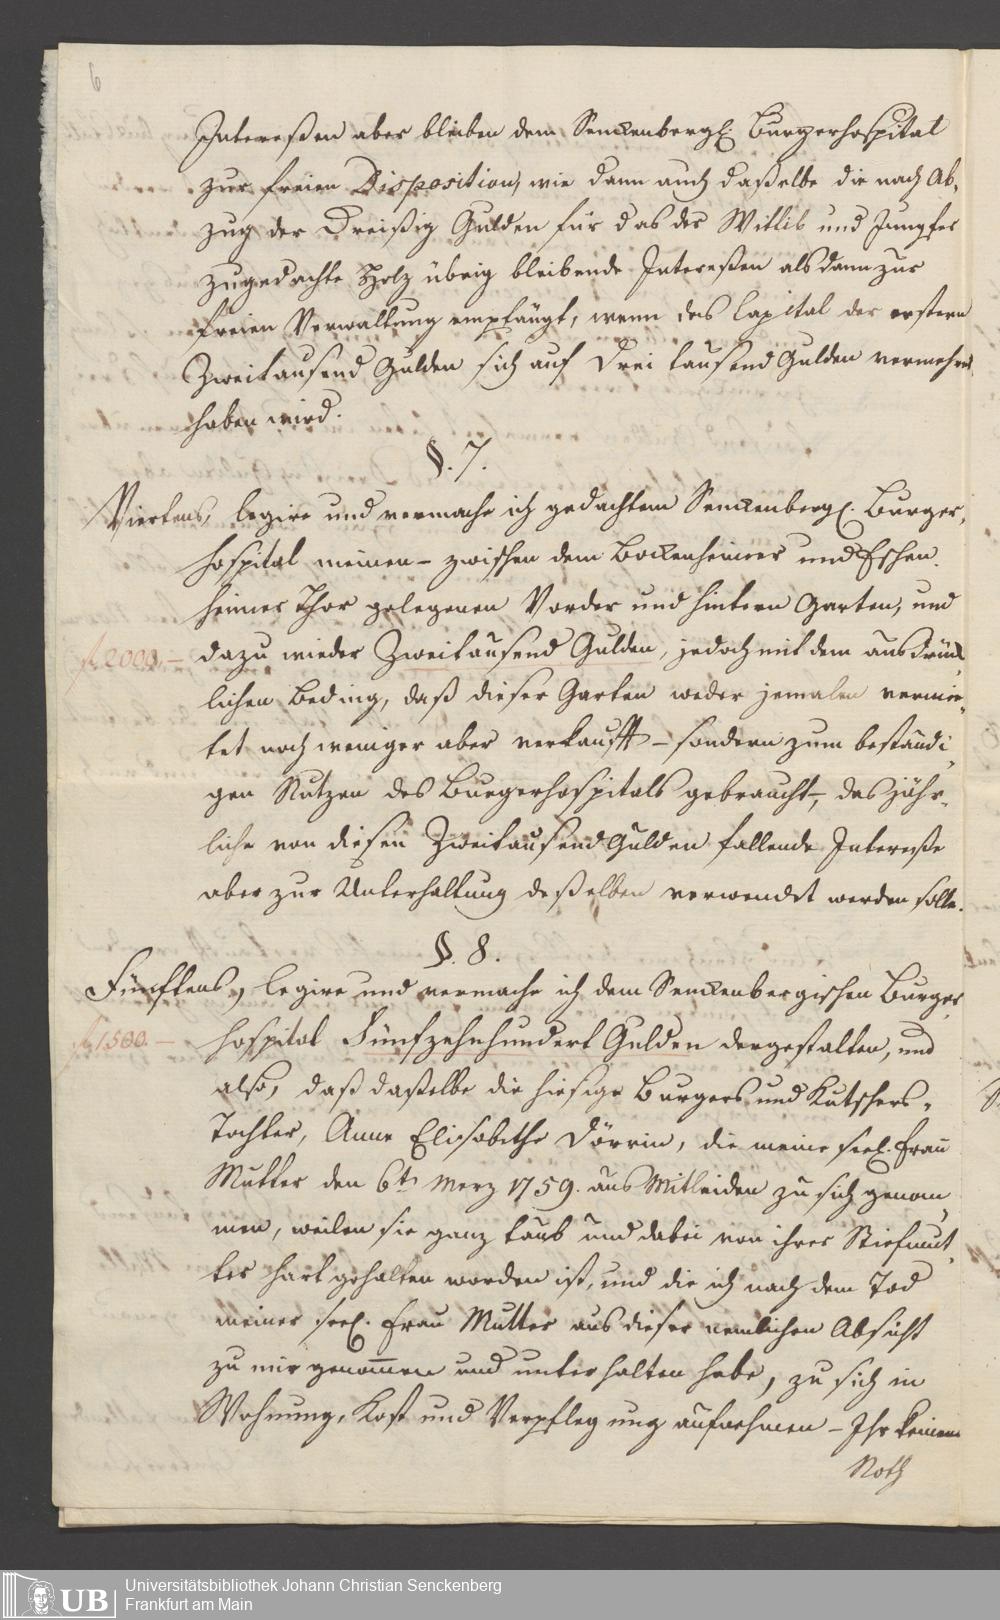 6
Interessen aber bleiben dem Senckenbergl. Burgerhospital
zur freien Disposition, wie dann auch dasselbe die nach Ab-
zug der Dreißig Gulden für das der Wittib und Jungfer
zugedachte Holz übrig bleibende Interessen alsdann zur
freien Verwaltung empfängt, wenn das Capital der erstern
Zweitausend Gulden sich auf Drei tausend Gulden vermehret
haben wird.
§. 7.
Viertens, legire und vermache ich gedachtem Senckenbergl. Burger-
hospital meinen - zwischen dem Bockenheimer und Eschen-
heimer Thor gelegenen Vorder und hintern Garten, und
f. 2000. - dazu wieder Zweitausend Gulden, jedoch mit dem ausdrück-
lichen Beding, daß dieser Garten weder jemalen vermie-
tet noch weniger aber verkaufft - sondern zum beständi-
gen Nutzen des Burgerhospitals gebraucht, das jähr-
liche von diesen Zweitausend Gulden fallende Interesse
aber zur Unterhaltung desselben verwendet werden solle.
§. 8.
Fünftens, legire und vermache ich dem Senckenbergischen Burger-
f. 1500. - hospital Fünfzehnhundert Gulden dergestalten, und
also, daß dasselbe die hiesige Burgers und Kutschers-
Tochter, Anne Elisabethe Dörrin, die meine seel. Frau
Mutter den 6tn Merz 1759. aus Mitleiden zu sich genom-
men, weilen sie ganz taub und dabei von ihrer Stiefmut-
ter hart gehalten worden ist, und die ich nach dem Tod
meiner seel. Frau Mutter aus dieser nemlichen Absicht
zu mir genommen und unterhalten habe, zu sich in
Wohnung, Kost und Verpflegung aufnehmen - Ihr keinen
Noth
UB
Universitätsbibliothek Johann Christian Senckenberg
Frankfurt am Main